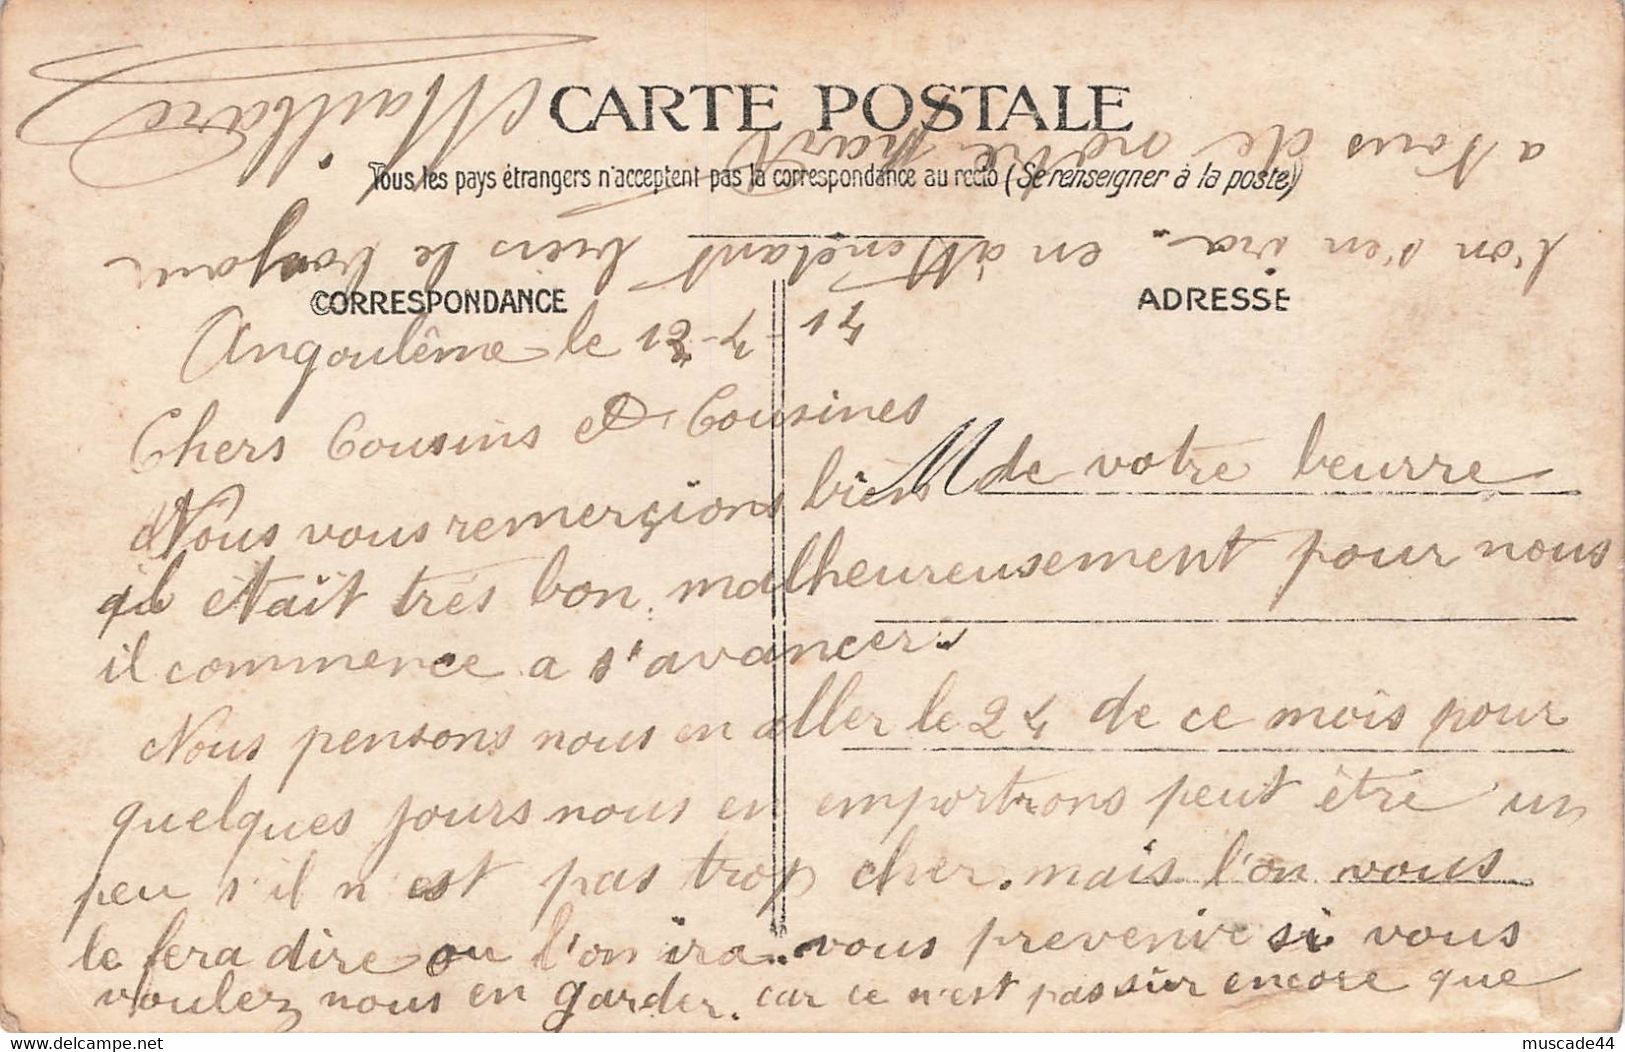 CARTE POSTALE
Tous les pays étrangers n'acceptent pas la correspondance au recto (Se renseigner à la poste)
CORRESPONDANCE
ADRESSE
Angoulême le 12-7-14
Chers Cousins et Cousines
Nous vous remerçions bien de votre beurre
M
il était très bon. malheureusement pour nous
il commence a s'avancer.
Nous pensons nous en aller le 24 de ce mois pour
quelques jours nous en emportrons peut être un
peu s'il n'est pas trop cher. mais l'on vous
le fera dire ou l'on ira vous prevenir si vous
voulez nous en garder. car ce n'est pas sûr encore que
l'on s'en ira. en attendant bien le bonjour
a tous de notre part
Maillard
muscade44